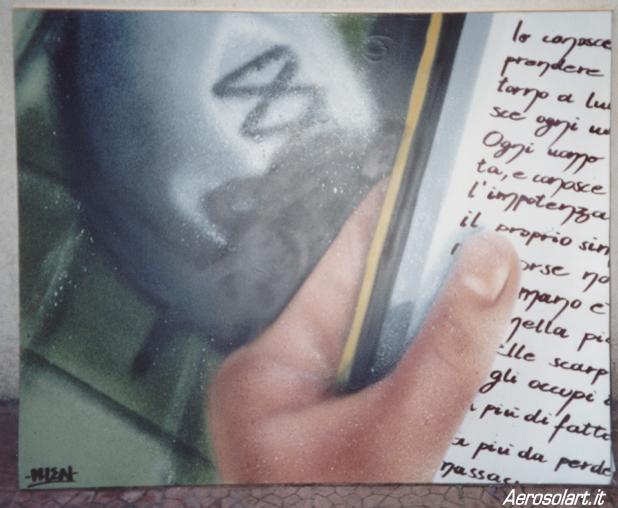 Io conosce
prendere
torno a lu
sce ogni u
Ogni uomo
ta, e conosce
l'impotenza
il proprio sim
orse no
mano è
nella pi
elle scarp
gli occupi
i più di fatt
a più da perde
massac
Aerosolart.it